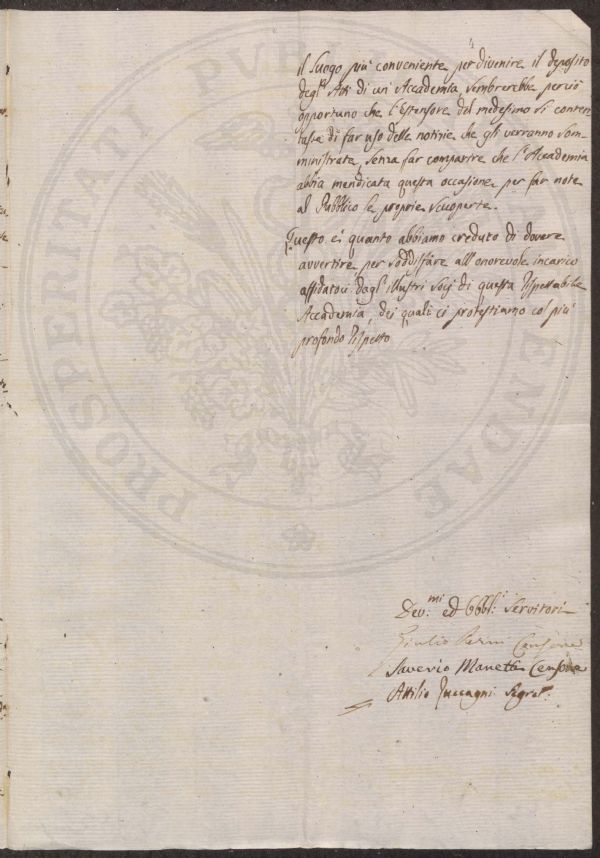 il luogo più conveniente per divenire il deposito
degl'Atti di un'Accademia sembrerebbe perciò
opportuno che l'Estensore del medesimo si conten
tasse di far uso delle notizie che gli verranno som
ministrate, senza far comparire che l'Accademia
abbia mendicata questa occasione per far note
al Pubblico le proprie scuoperte.
Questo é quanto abbiamo creduto di dovere
avvertire per soddisfare all'onorevole incarico
affidatoci dagl'illustri Socj di questa Rispettabile
Accademia, dei quali ci protestiamo col più
profondo Rispetto
Dev.mi ed Obbl.i Servitori
Giulio Censore
Saverio Manetti Censore
Attilio Zuccagni Segret.
PROSPERITATI PUBLICAE AUGENDAE